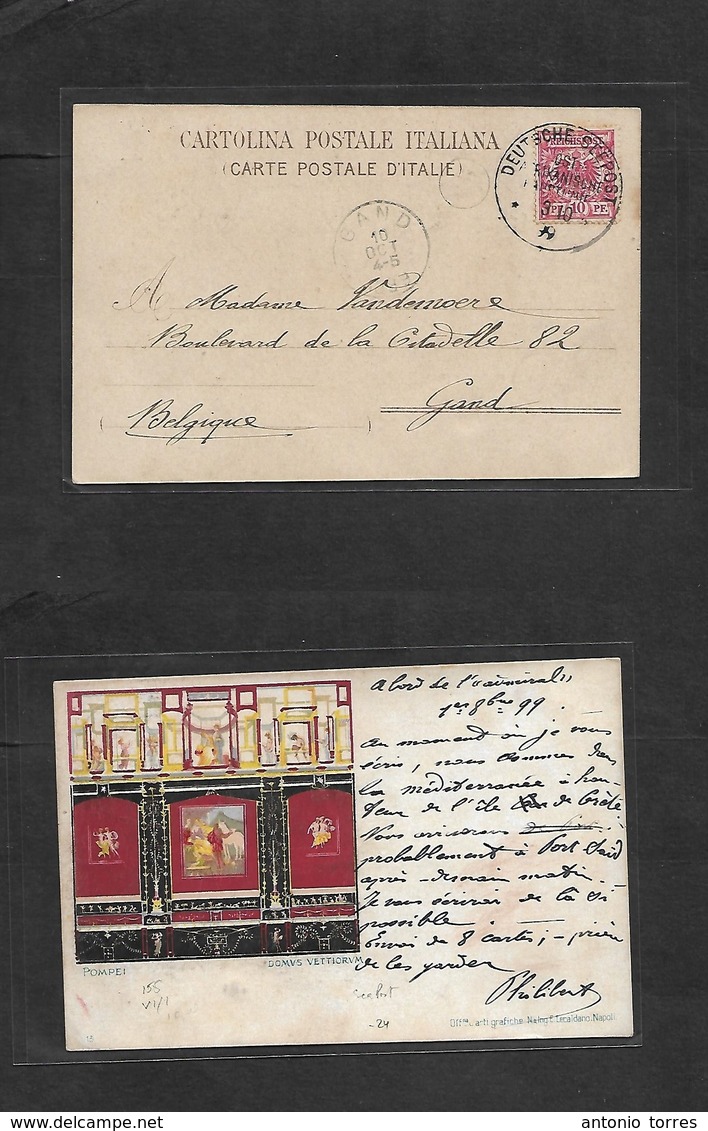 CARTOLINA POSTALE ITALIANA
(CARTE POSTALE D'ITALIE)
DEUTSCHE SEEPOST
REICHSPOST
OST-
AFRIKANISCHE
10 PF.
3 10
GAND
10
OCT
4-5
A Madame Vandemoere
Boulevard de la Citadelle 82
Gand
Belgique
A bord de l'
1er 8bre 99.
Au moment où je vous
écris, nous sommes dans
la méditerranée à hau-
teur de l'île de Crète
Vous
probablement à Port Saïd
après-demain matin.
Je vous écrirai de là si
possible.
Envoi de 8 cartes; - prière
de les garder
Philibert
POMPEI
DOMVS VETTIORVM
155
VI/1
Seepost
-24
15
Offna d'arti grafiche Na Ing E. Tecaldano. Napoli
antonio torres